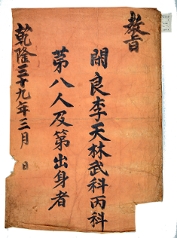 敎旨
閑良李天林武科丙科
第八人及第出身者
乾隆三十九年三月　日